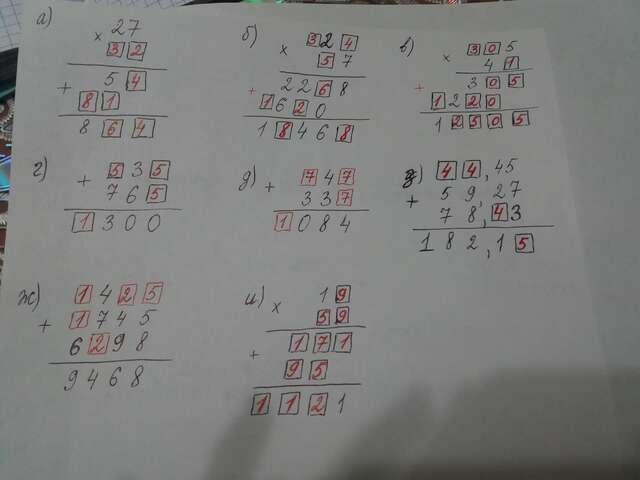 а)
× 27
32
+ 54
81
864
б)
× 324
57
+ 2268
1620
18468
в)
× 305
41
+ 305
1220
12505
г)
+ 535
765
1300
д)
+ 747
337
1084
44,45
+ 59,27
78,43
182,15
ж)
+ 1425
1745
6298
9468
и)
× 19
59
+ 171
95
1121